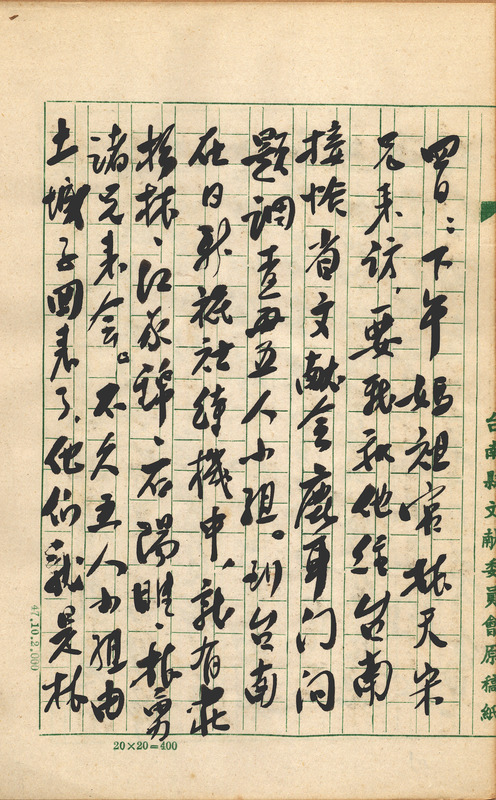 四日：下午媽祖宮林天宋
兄來訪，要我和他往台南
接洽省文献會鹿耳门问
题調查五人小組。到台南
在日新祗社候機中、就有莊
松林、江家錦、石陽睢、林勇
諸兄来会。不久五人小組由
土城子回来了、他们就是林
台南縣文献委員會原稿紙
47.10.2.000
20×20=400